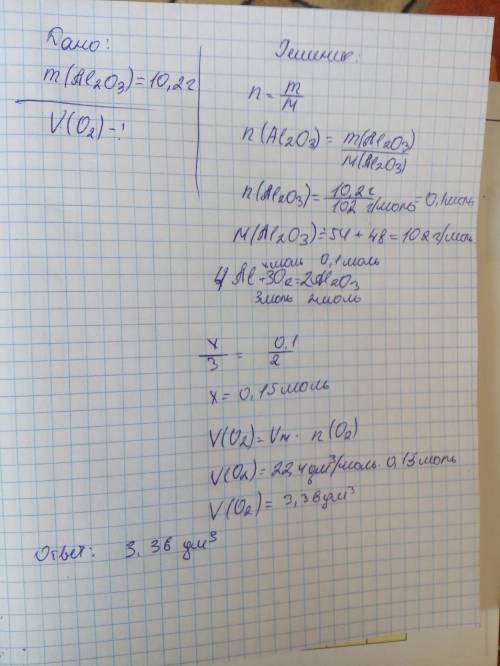 Дано:
m(Al₂O₃)=10,2г
V(O₂)-?
Решение:
n = m/M
n(Al₂O₃) = m(Al₂O₃)/M(Al₂O₃)
n(Al₂O₃) = 10,2г/102 г/моль = 0,1моль
M(Al₂O₃) = 54 + 48 = 102 г/моль
x моль 0,1 моль
4Al + 3O₂ = 2Al₂O₃
3моль 2моль
x/3 = 0,1/2
x = 0,15 моль
V(O₂) = Vm · n(O₂)
V(O₂) = 22,4 дм³/моль · 0,15 моль
V(O₂) = 3,36 дм³
Ответ: 3,36 дм³